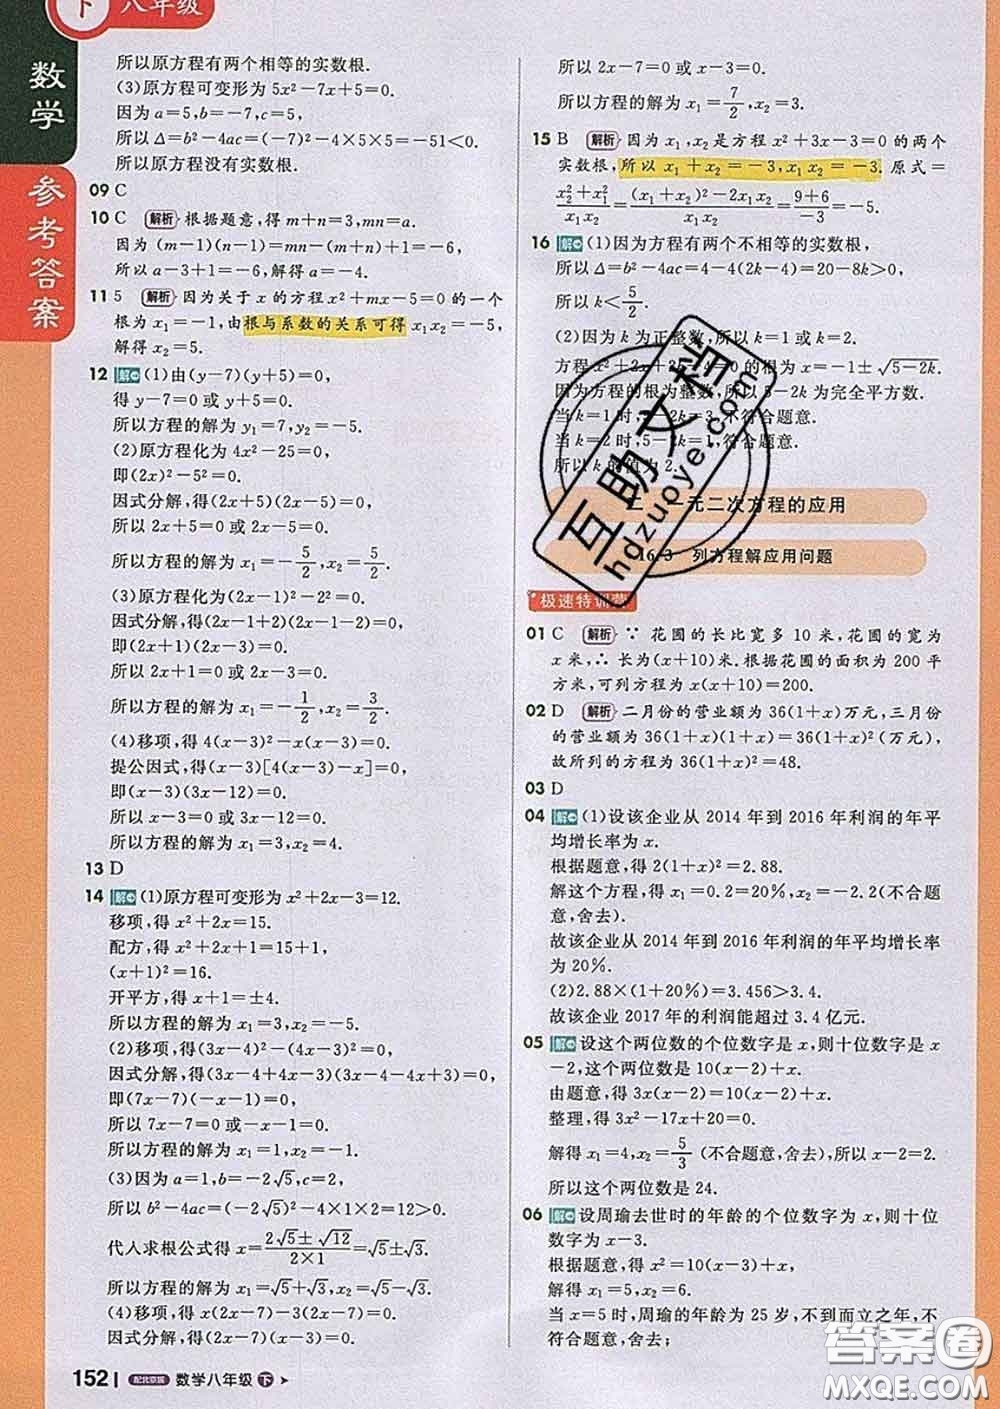 下 八年级
数学
参考答案
所以原方程有两个相等的实数根.
(3)原方程可变形为5x²-7x+5=0.
因为a=5,b=-7,c=5,
所以Δ=b²-4ac=(-7)²-4×5×5=-51<0.
所以原方程没有实数根.
09 C
10 C 解析 根据题意,得m+n=3,mn=a.
因为(m-1)(n-1)=mn-(m+n)+1=-6,
所以a-3+1=-6,解得a=-4.
11 5 解析 因为关于x的方程x²+mx-5=0的一个
根为x₁=-1,由根与系数的关系可得x₁x₂=-5,
解得x₂=5.
12 解 (1)由(y-7)(y+5)=0,
得y-7=0或y+5=0.
所以方程的解为y₁=7,y₂=-5.
(2)原方程化为4x²-25=0,
即(2x)²-5²=0.
因式分解,得(2x+5)(2x-5)=0.
所以2x+5=0或2x-5=0.
所以方程的解为x₁=-5/2,x₂=5/2.
(3)原方程化为(2x-1)²-2²=0.
因式分解,得(2x-1+2)(2x-1-2)=0.
即(2x+1)(2x-3)=0.
所以2x+1=0或2x-3=0.
所以方程的解为x₁=-1/2,x₂=3/2.
(4)移项,得4(x-3)²-x(x-3)=0.
提公因式,得(x-3)[4(x-3)-x]=0.
即(x-3)(3x-12)=0.
所以x-3=0或3x-12=0.
所以方程的解为x₁=3,x₂=4.
13 D
14 解 (1)原方程可变形为x²+2x-3=12.
移项,得x²+2x=15.
配方,得x²+2x+1=15+1,
(x+1)²=16.
开平方,得x+1=±4.
所以方程的解为x₁=3,x₂=-5.
(2)移项,得(3x-4)²-(4x-3)²=0.
因式分解,得(3x-4+4x-3)(3x-4-4x+3)=0,
即(7x-7)(-x-1)=0.
所以7x-7=0或-x-1=0.
所以方程的解为x₁=1,x₂=-1.
(3)因为a=1,b=-2√5,c=2,
所以b²-4ac=(-2√5)²-4×1×2=12>0.
代人求根公式得x=(2√5±√12)/(2×1)=√5±√3.
所以方程的解为x₁=√5+√3,x₂=√5-√3.
(4)移项,得x(2x-7)-3(2x-7)=0.
因式分解,得(2x-7)(x-3)=0.
152 配北京版 数学八年级 下
所以2x-7=0或x-3=0.
所以方程的解为x₁=7/2,x₂=3.
15 B 解析 因为x₁,x₂是方程x²+3x-3=0的两个
实数根,所以x₁+x₂=-3,x₁x₂=-3.原式=
(x₂²+x₁²)/(x₁x₂)=((x₁+x₂)²-2x₁x₂)/(x₁x₂)=(9+6)/(-3)=-5.
16 解 (1)因为方程有两个不相等的实数根,
所以Δ=b²-4ac=4-4(2k-4)=20-8k>0,
所以k<5/2.
(2)因为k为正整数,所以k=1或k=2.
方程x²+2x+2k-4=0的根为x=-1±√(5-2k.
因为方程的根为整数,所以5-2k为完全平方数.
当k=1时,5-2k=3,不符合题意.
当k=2时,5-2k=1,符合题意.
所以k的值为2.
二、一元二次方程的应用
16.3 列方程解应用问题
极速特训营
01 C 解析 ∵花圃的长比宽多10米,花圃的宽为
x米,∴长为(x+10)米.根据花圃的面积为200平
方米,可列方程为x(x+10)=200.
02 D 解析 二月份的营业额为36(1+x)万元,三月份
的营业额为36(1+x)(1+x)=36(1+x)²(万元),
故所列的方程为36(1+x)²=48.
03 D
04 解 (1)设该企业从2014年到2016年利润的年平
均增长率为x.
根据题意,得2(1+x)²=2.88.
解这个方程,得x₁=0.2=20%,x₂=-2.2(不合题
意,舍去).
故该企业从2014年到2016年利润的年平均增长率
为20%.
(2)2.88×(1+20%)=3.456>3.4.
故该企业2017年的利润能超过3.4亿元.
05 解 设这个两位数的个位数字是x,则十位数字是x
-2,这个两位数是10(x-2)+x.
由题意,得3x(x-2)=10(x-2)+x.
整理,得3x²-17x+20=0.
解得x₁=4,x₂=5/3(不合题意,舍去),所以x-2=2.
所以这个两位数是24.
06 解 设周瑜去世时的年龄的个位数字为x,则十位
数字为x-3.
根据题意,得x²=10(x-3)+x.
解得x₁=5,x₂=6.
当x=5时,周瑜的年龄为25岁,不到而立之年,不
符合题意,舍去;
互助文档
hdzuoye.com
答案圈
MXQE.COM